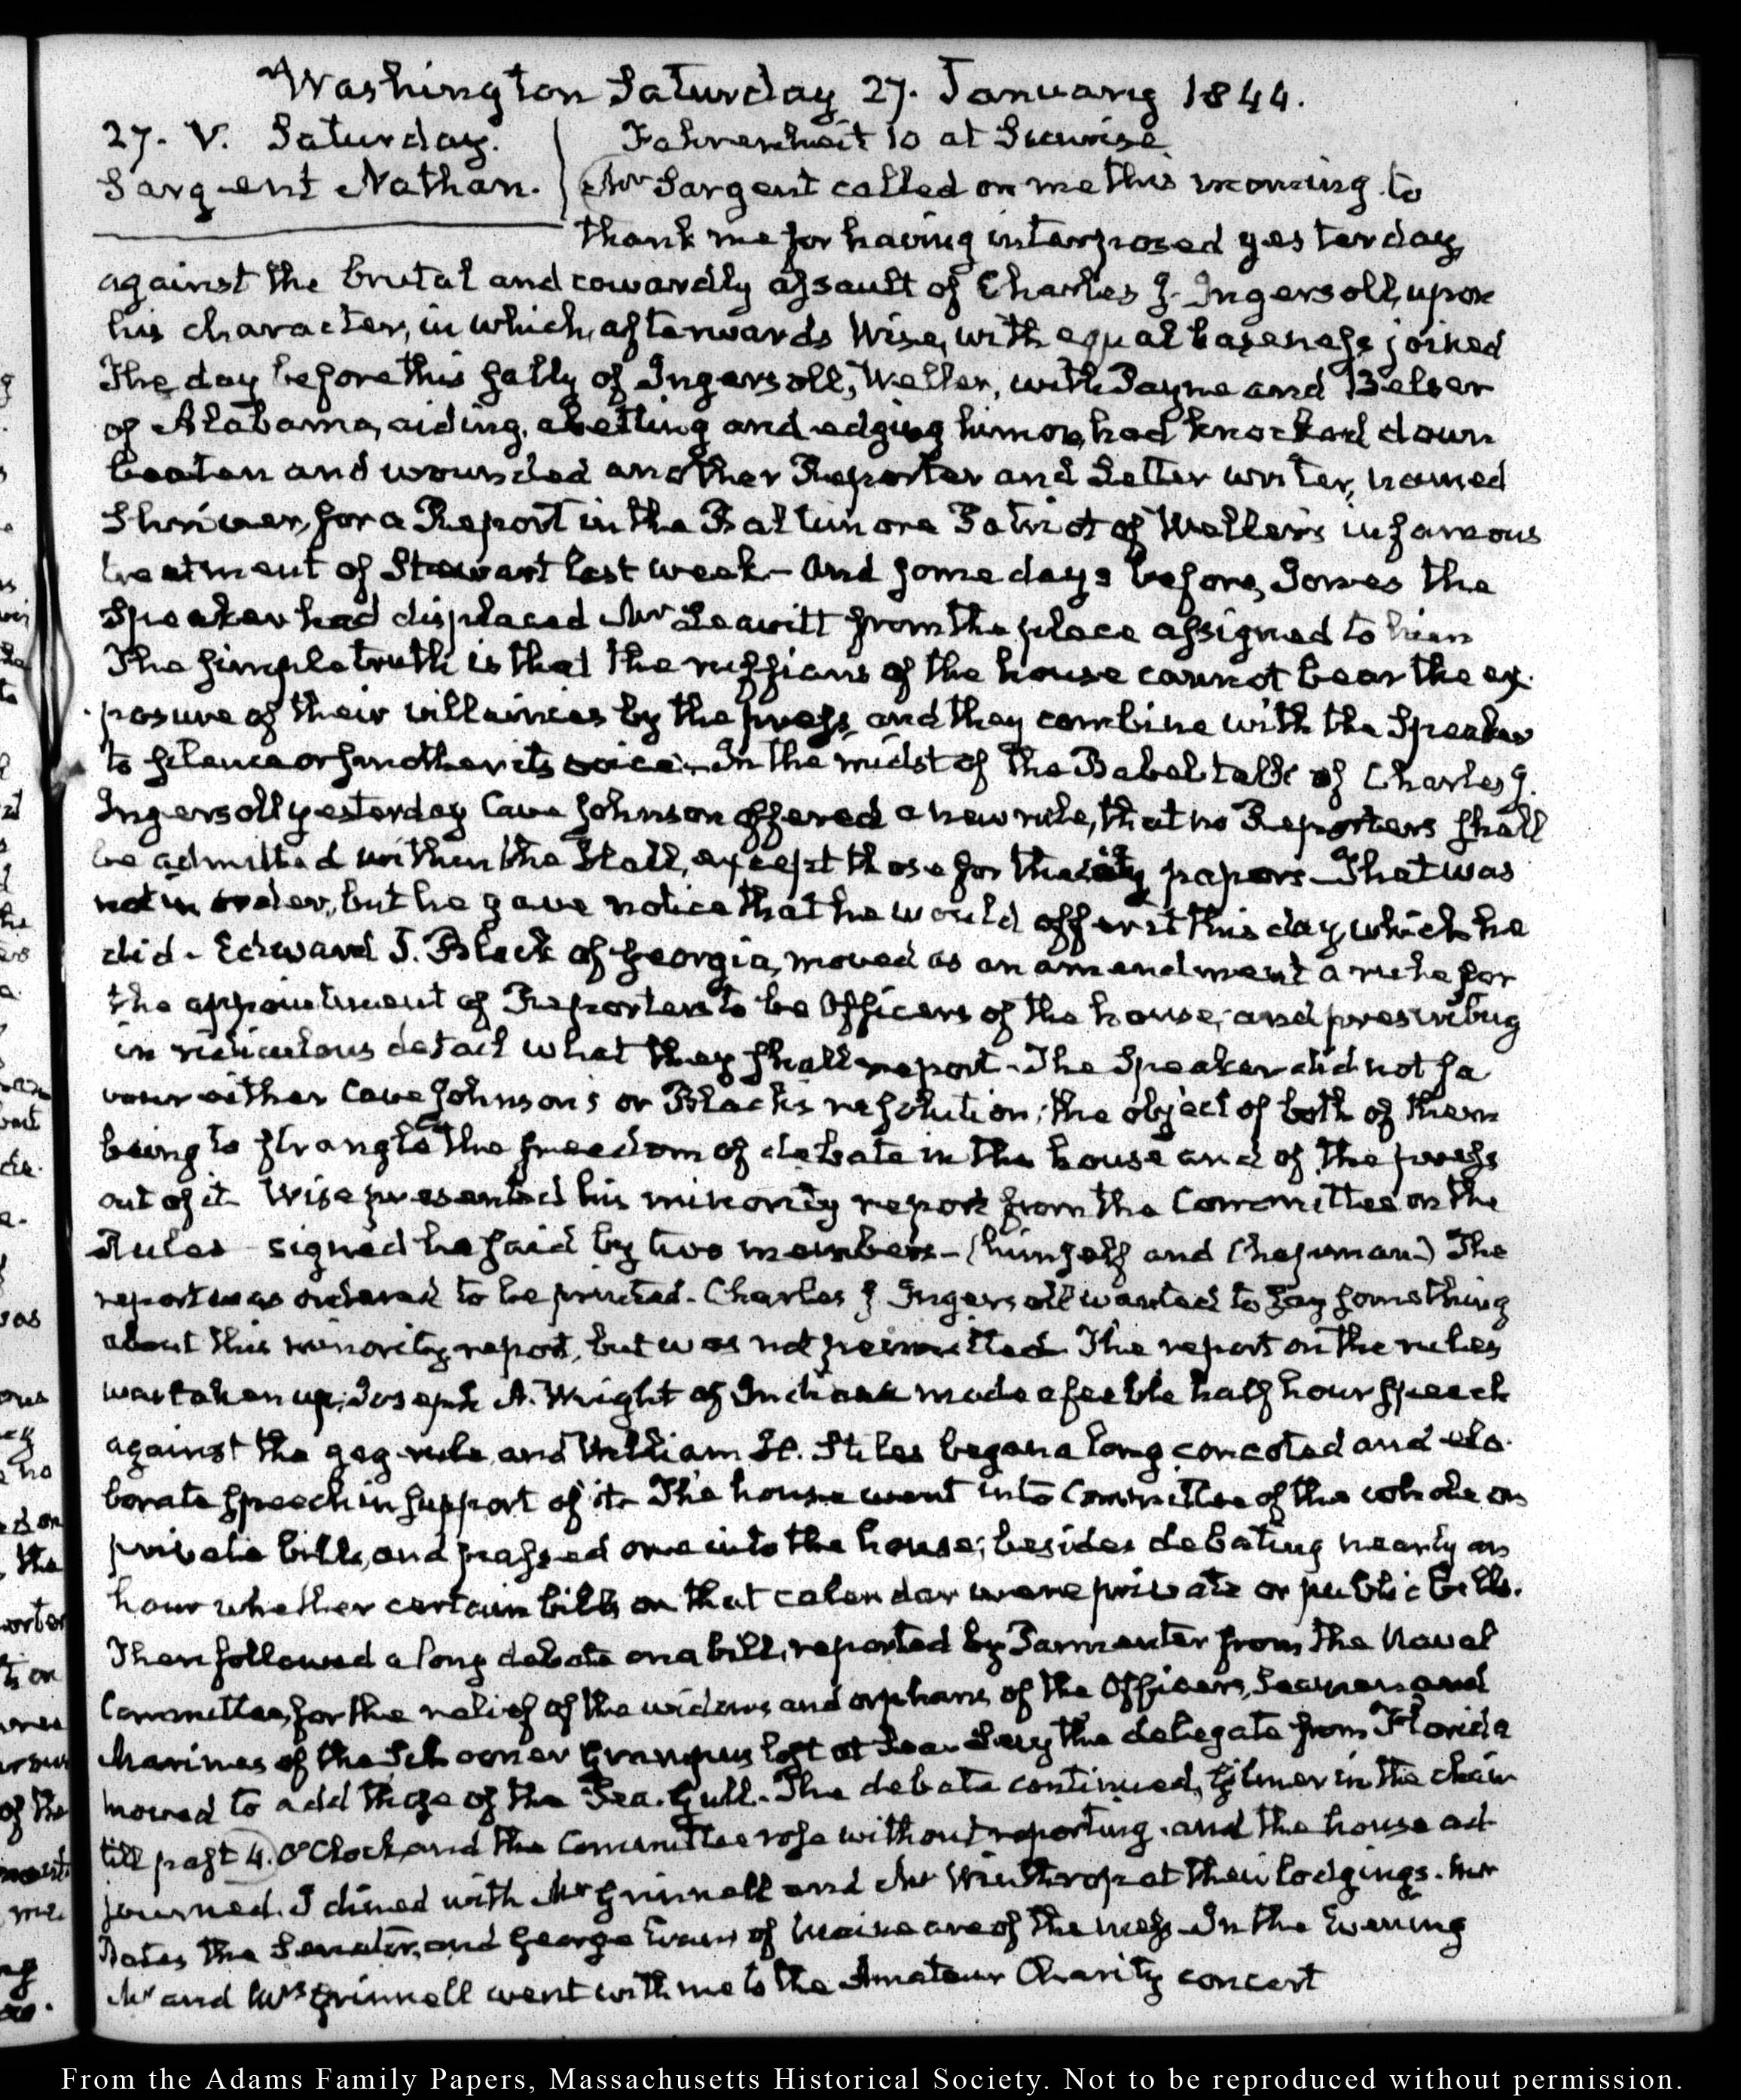 Washington Saturday 27. January 1844.
27. V. Saturday. Fahrenheit 10 at Sunrise
Sargent Nathan. Mr Sargent called on me this morning to
thank me for having interposed yesterday
against the brutal and cowardly assault of Charles J. Ingersoll, upon
his character, in which, afterwards Wise, with equal baseness joined
The day before this sally of Ingersoll, Weller, with Payne and Belser
of Alabama, aiding, abetting and edging him on, had knocked down
beaten and wounded another Reporter and Letter writer, named
Shriver, for a Report in the Baltimore Patriot of Weller's infamous
treatment of Stewart last week – and some days before, Jones the
Speaker had displaced Mr Leavitt from the place assigned to him
The simple truth is that the ruffians of the house cannot bear the ex-
-posure of their villainies by the press, and they combine with the Speaker
to silence or smother its voice. In the midst of the Babel talk of Charles J.
Ingersoll yesterday Cave Johnson offered a new rule, that no Reporters shall
be admitted within the Hall, except those for the city papers – That was
not in order, but he gave notice that he would offer it this day, which he
did – Edward J. Black of Georgia, moved as an amendment a rule for
the appointment of Reporters to be Officers of the house, and prescribing
in ridiculous detail what they shall report – The Speaker did not fa
vour either Cave Johnson's or Black's resolution; the object of both of them
being to strangle the freedom of debate in the house and of the press
out of it. Wise presented his minority report from the Committee on the
Rules – signed he said by two members – (himself and Chapman) The
report was ordered to be printed – Charles J. Ingersoll wanted to say something
about this minority report, but was not permitted. The report on the rules
was taken up; Joseph A. Wright of Indiana made a feeble half hour speech
against the gag-rule, and William H. Stiles began a long concocted and ela-
borate speech in support of it. The house went into Committee of the whole on
private bills, and passed one into the house; besides debating nearly an
hour whether certain bills on that calendar were private or public bills.
Then followed a long debate on a bill, reported by Parmenter from the Naval
Committee, for the relief of the widows and orphans of the Officers, Seamen and
Marines of the Schooner Grampus lost at Sea – Levy the delegate from Florida
moved to add those of the Sea-Gull – The debate continued, Gilmer in the chair
till past 4. O'Clock and the Committee rose without reporting – and the house ad-
journed. I dined with Mr Grinnell and Mr Winthrop at their lodgings. Mr
Bates the Senator, and George Evans of Maine are of the mess – In the Evening
Mr and Mrs Grinnell went with me to the Amateur Charity concert
From the Adams Family Papers, Massachusetts Historical Society. Not to be reproduced without permission.